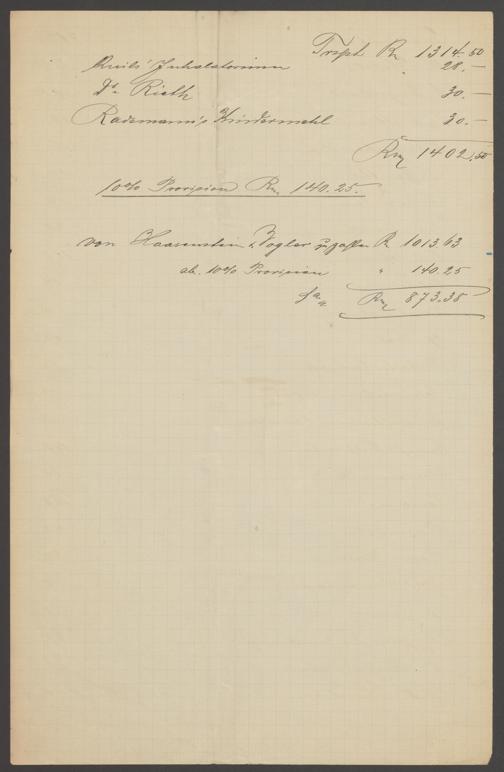 Trspt. Rm 1314.50
Inhalatorium 28.—
Dr. Rieth 30.—
Rademann's Kindermehl 30.—
Rm 1402.50
10% Provision Rm 140.25.
von Haasenstein & Vogler R 1013.63
ab. 10% Provision " 140.25
Rm 873.38